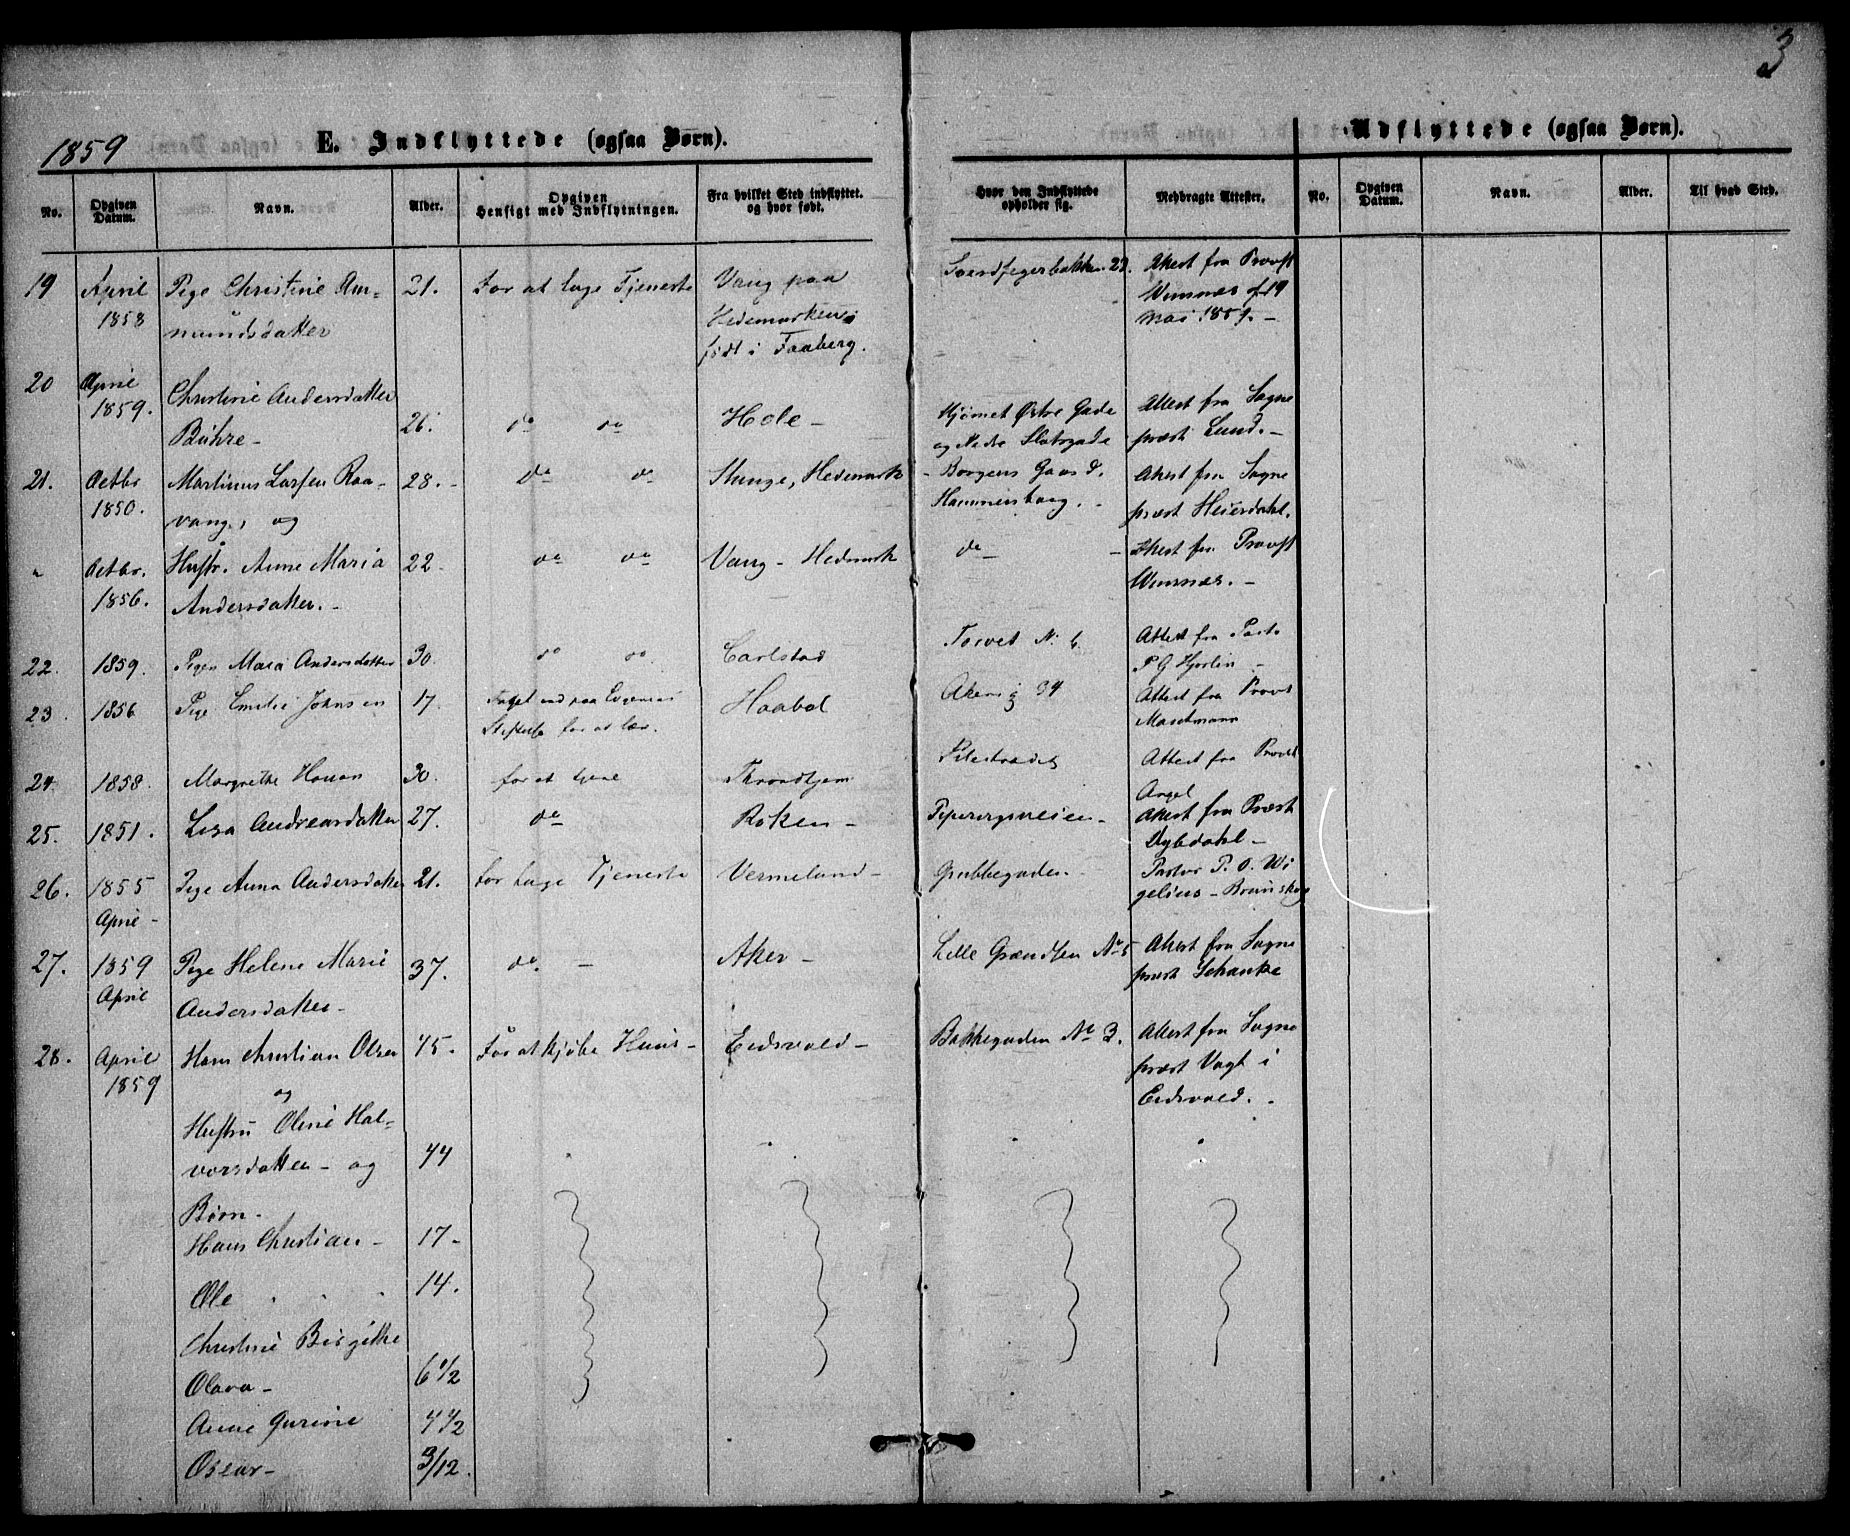 3
1859
E. Indflyttede (ogsaa Børn).
Udflyttede (ogsaa Børn).
No. Opgiven Datum. Navn. Alder. Opgiven Hensigt med Indflytningen. Fra hvilket Sted indflyttet. og hvor født. Hvor den Indflyttede opholder sig. Medbragte Attester. No. Opgiven Datum. Navn. Alder. Til hvad Sted.
19 April Pige Christine Am= 21. For at tage Tjeneste Vang paa Sverdfegerbakken 23. Attest fra Provst
1858 mundsdatter Hedemarken; Wimnæs af 19
født i Faaberg. Mai 1859. –
20 April Christine Andersdatter 26. do do Hole – Hjørnet Østre Gade Attest fra Sogne
1859. Buhre – og Nedre Slotsgade præst Lund. –
21. Octbr Martinus Larsen Raa= 28. – do do Stange, Hedemark – Borgens Gaard. Attest fra Sogne
1850. vang, og Hammersborg. – præst Heierdahl.
" Octbr. Hustr. Anne Maria 22 do do Vang – Hedmark do – – Attest fra Provst
1856. Andersdatter. – Wimnæs. –
22. 1859. Pigen Maria Andersdatter 30. do do. Carlstad Torvet N. 6. Attest fra Pastor
P G Hjorlin –
23. 1856 Pige Emilie Johnsen 17. Taget ind paa Eugenias Haabøl Akers 94 Attest fra Provst
Stiftelse for at lær. Maschmann
24. 1858. Margrethe Hansen 30. for at tjene Throndhjem Pilestrædet Attest fra Provst
Angel
25. 1851. Lisa Andreasdatter 27. do Røken – Pipervigsveien – Attest fra Præst
Dybdahl –
26. 1855 Pige Anna Andersdatter 21. For tage Tjeneste Vermeland – Grubbegaden – Pastor P. O. Wi
April – gelius – Brunskog
27. 1859 Pige Helene Marie 37. do. – Aker – Lille Grændsen No 5 Attest fra Sogne
April Andersdatter – præst Schanke
28. April Hans Christian Olsen 45. For at kjøbe Huus – Eidsvold – Bakkegaden No 3. Attest fra Sogne
1859 og præst Vogt i
Hustru Oline Hal= Eidsvold. –
vorsdatter – og 44
Børn –
Hans Christian – 17 –
Ole 14.
Christine Birgitte
Olava – 6 1/2
Anne Gurine 4 1/2
Oscar – 3/12.